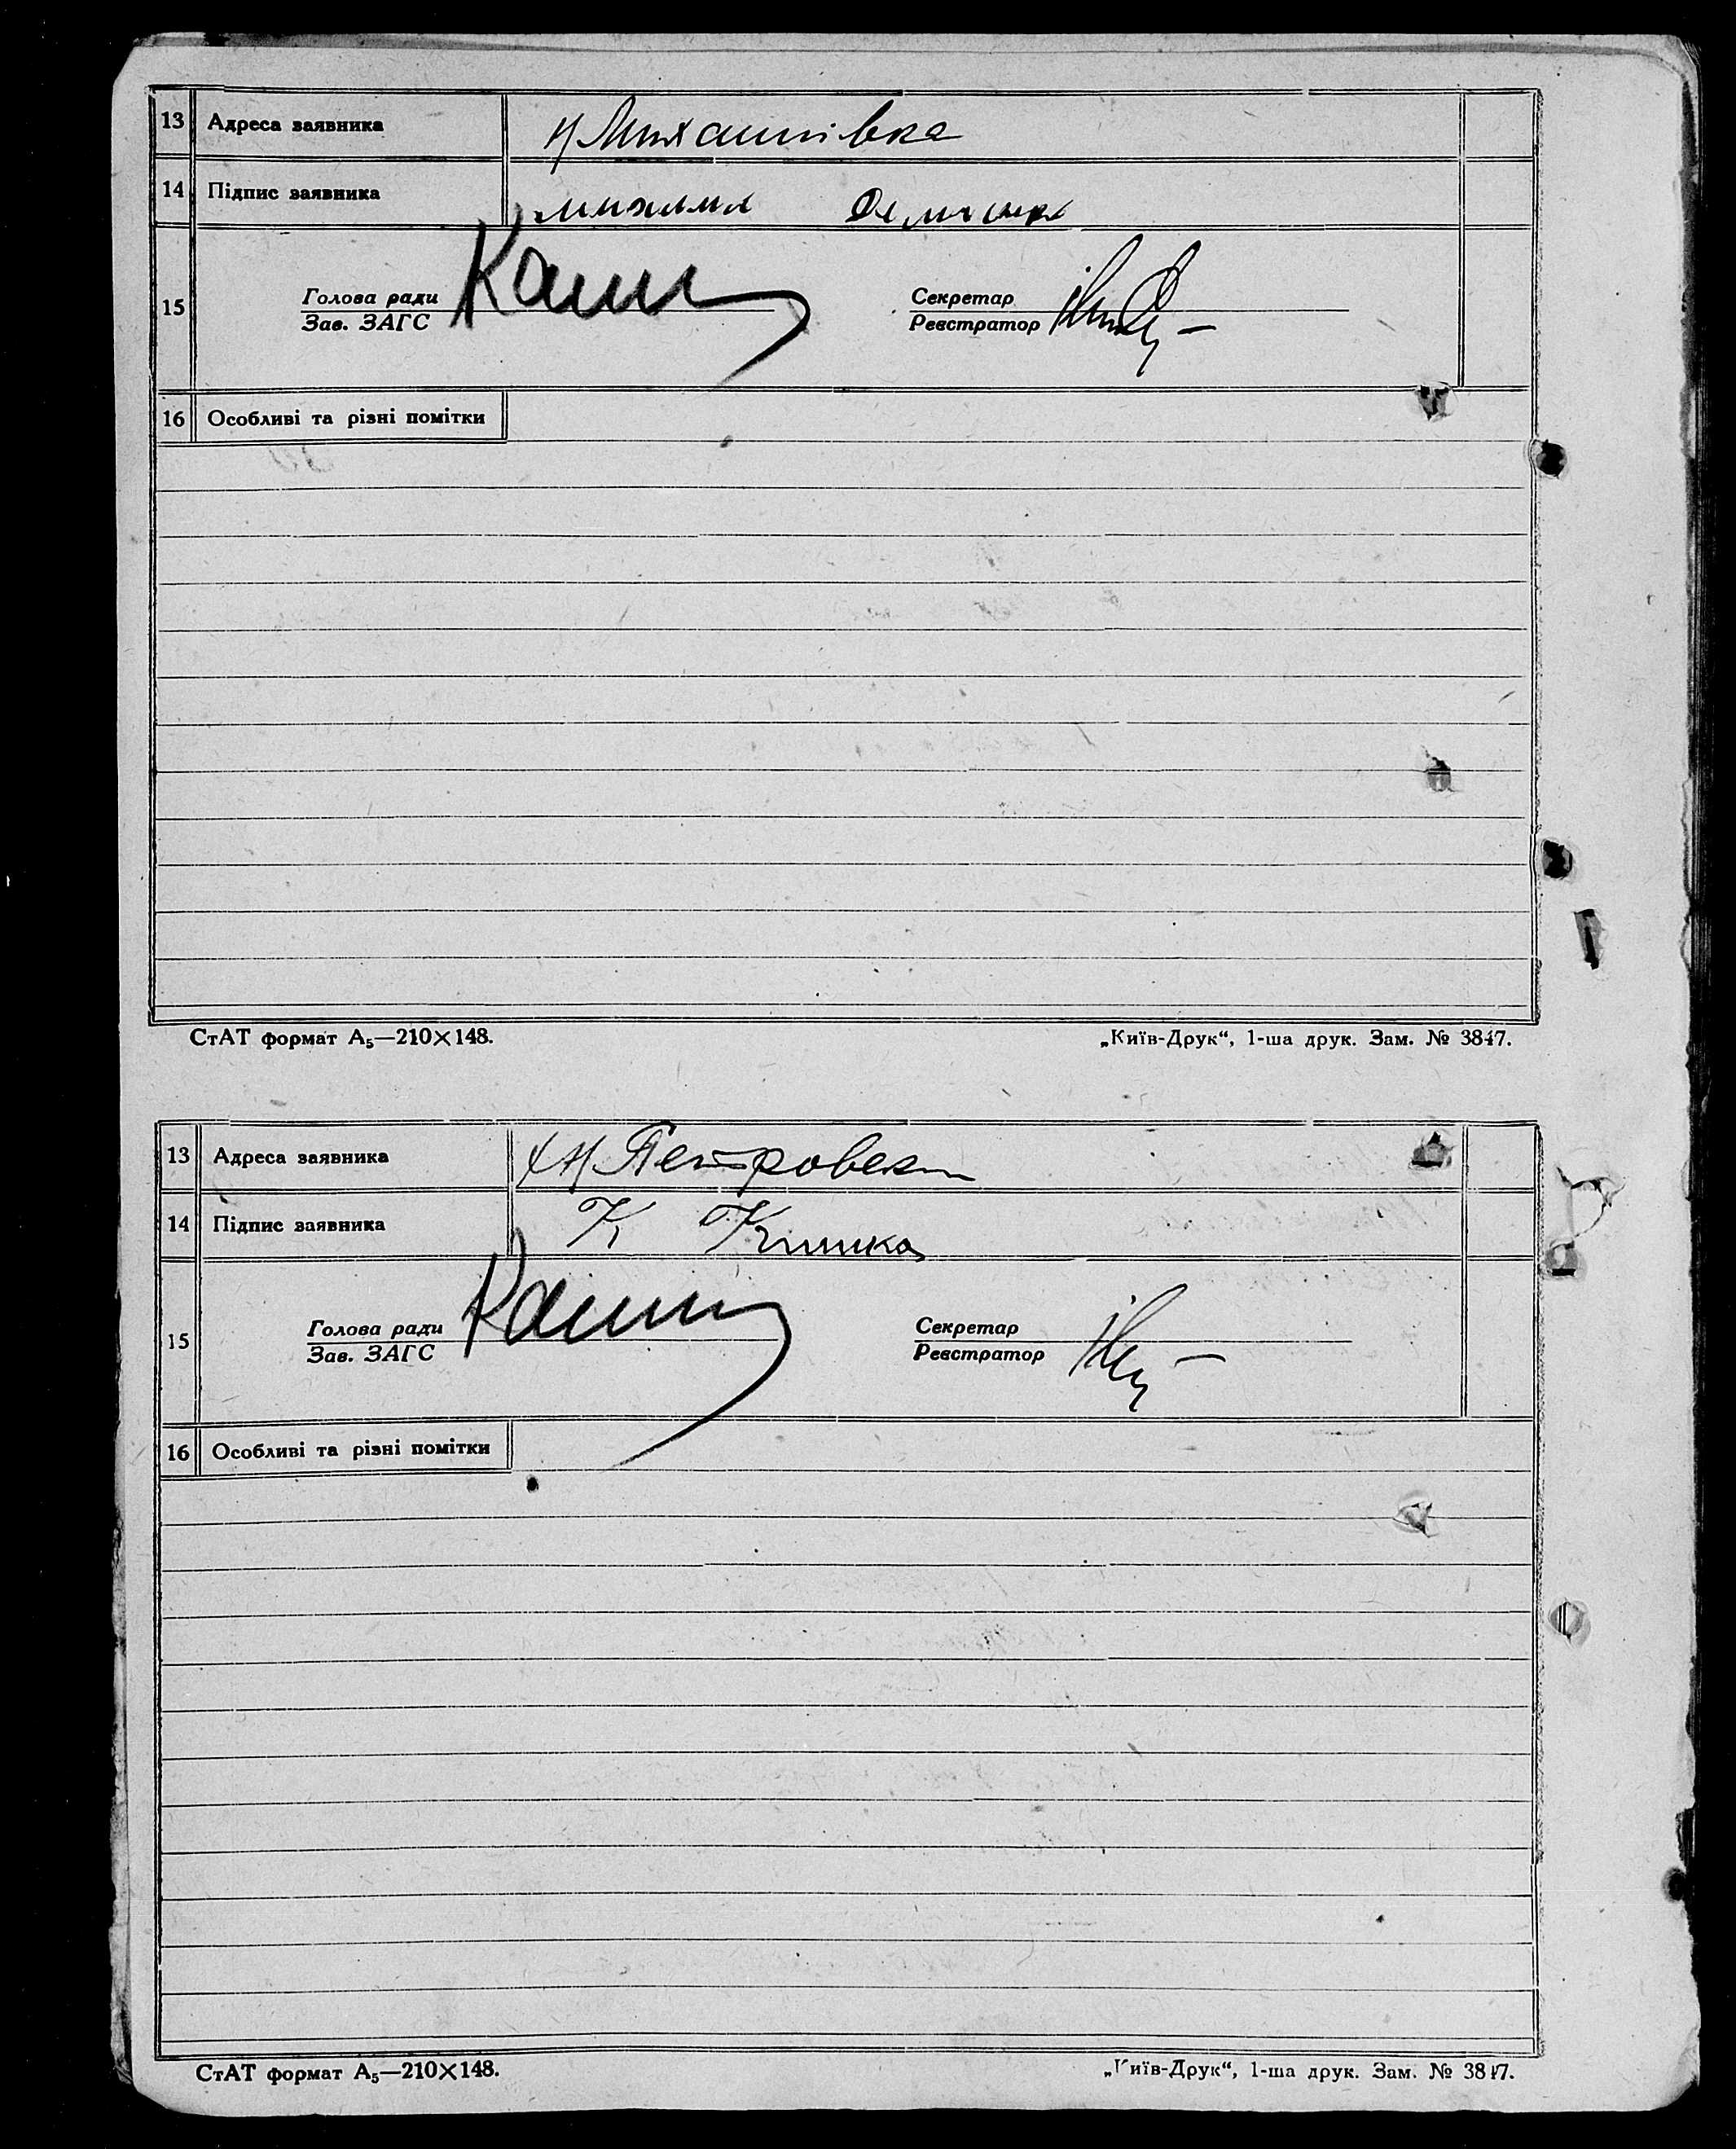 13 Адреса заявника Н Михайлівка
14 Підпис заявника
15 Голова ради Секретар
Зав. ЗАГС Реєстратор
16 Особливі та різні помітки
СтАТ формат А5—210×148. „Київ-Друк“, 1-ша друк. Зам. № 3847.
13 Адреса заявника Петровск
14 Підпис заявника К Кишка
15 Голова ради Секретар
Зав. ЗАГС Реєстратор
16 Особливі та різні помітки
СтАТ формат А5—210×148. „Київ-Друк“, 1-ша друк. Зам. № 3847.